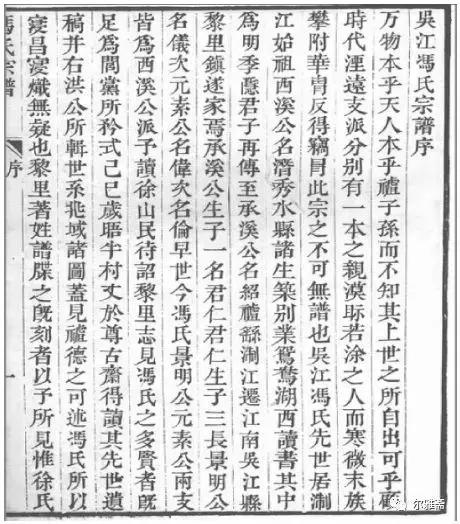 吳江馮氏宗譜序
万物本乎天人本乎禮子孫而不知其上世之所自出可乎顧
時代湮遠支派分別有一本之親漠眎若涂之人而寒微末族
攀附華胄反得竊冐此宗之不可無譜也吳江馮氏先世居淛
江始祖西溪公名潛秀水縣諸生築別業鴛鴦湖西讀書其中
為明季隱君子再傳至承溪公名紹禮繇淛江遷江南吳江縣
黎里鎮遂家焉承溪公生子一名君仁君仁生子三長景明公
名儀次元素公名偉次名倫早世今馮氏景明公元素公兩支
皆為西溪公派予讀徐山民待詔黎里志見馮氏之多賢者旣
足為閭黨所矜式己巳歲晤半村丈於尊古齋得讀其先世遺
稿并右洪公所輯世系兆域諸圖蓋見禮德之可述馮氏所以
寖昌寖熾無疑也黎里著姓譜牒之旣刻者以予所見惟徐氏
馮氏宗譜
序
一
尔雅斋